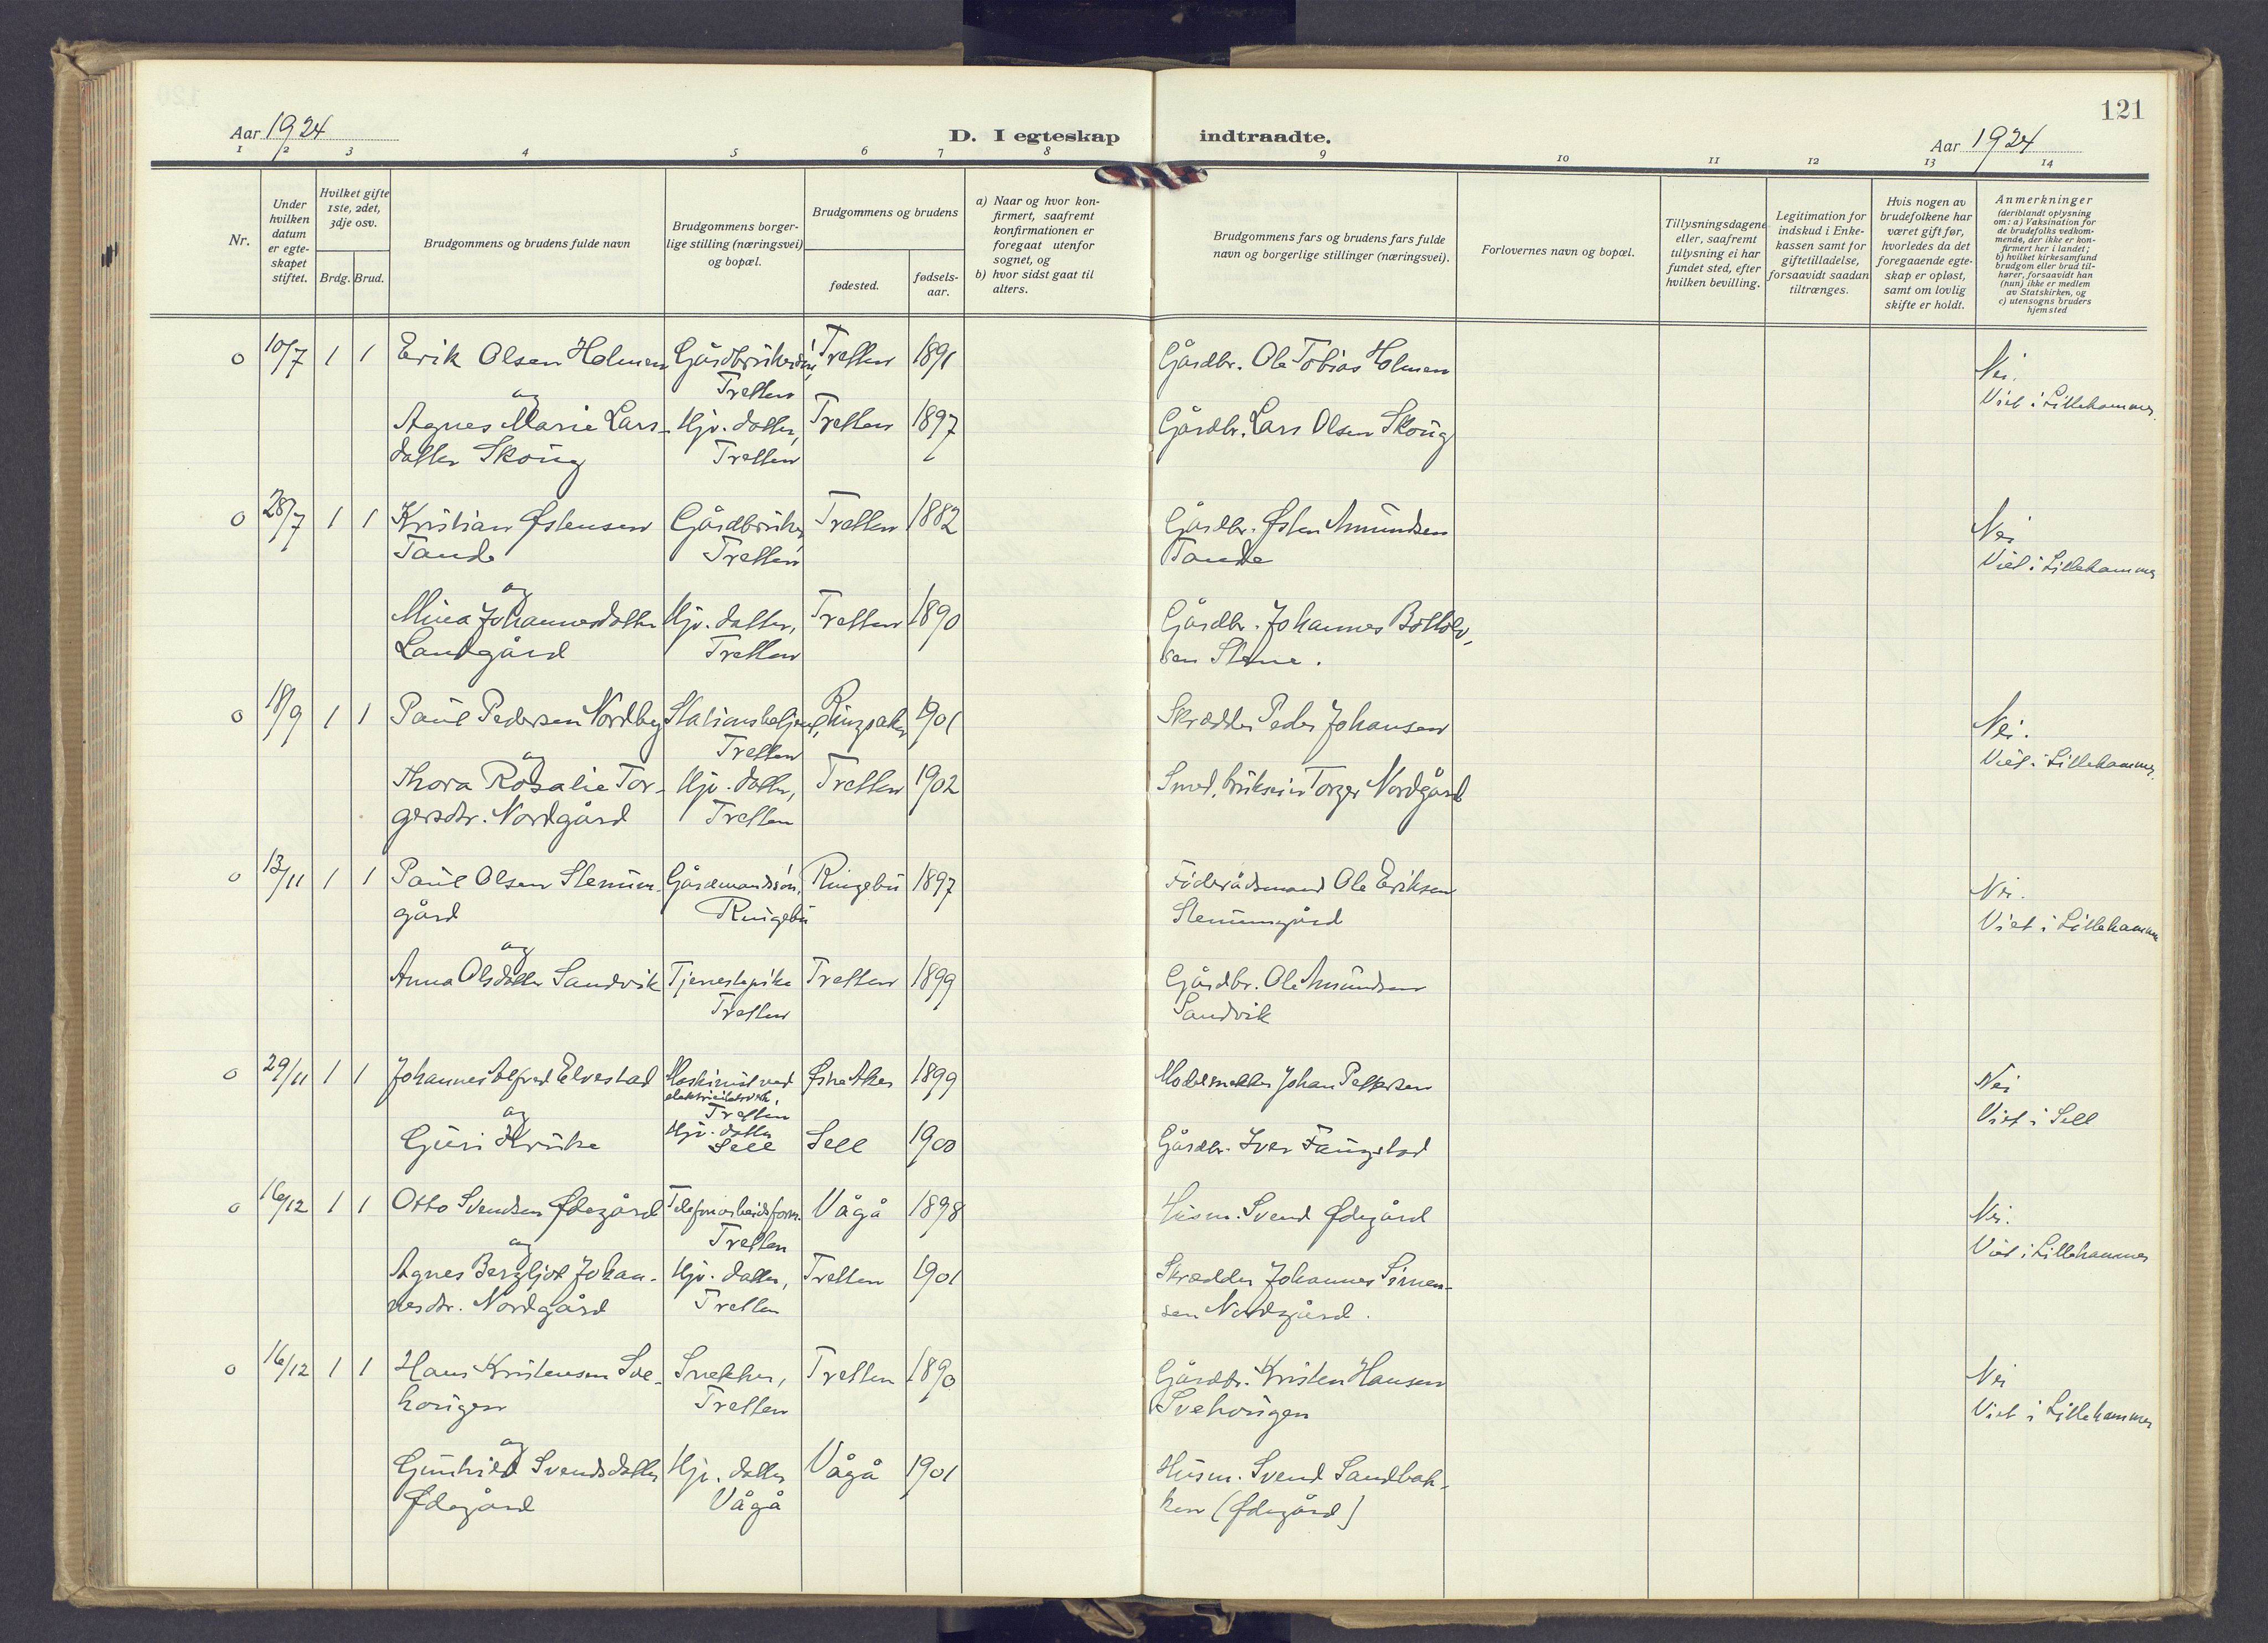 121
Aar 1924
D. I egteskap indtraadte.
Aar 1924
1 2 3 4 5 6 7 8 9 10 11 12 13 14
Nr.
Under hvilken datum er egte-skapet stiftet.
Hvilket gifte 1ste, 2det, 3dje osv.
Brdg. Brud.
Brudgommens og brudens fulde navn
Brudgommens borger-lige stilling (næringsvei) og bopæl.
Brudgommens og brudens
fødested.
fødsels-aar.
a) Naar og hvor kon-firmert, saafremt konfirmationen er foregaat utenfor sognet, og
b) hvor sidst gaat til alters.
Brudgommens fars og brudens fars fulde navn og borgerlige stillinger (næringsvei).
Forlovernes navn og bopæl.
Tillysningsdagene eller, saafremt tullysning ei har fundet sted, efter hvilken bevilling.
Legitimation for indskud i Enke-kassen samt for giftetilladelse, forsaavidt saadan tiltrænges.
Hvis nogen av brudefolkene har været gift før, hvorledes da det foregaaende egte-skap er opløst, samt om lovlig skifte er holdt.
Anmerkninger
(deriblandt oplysning om: a) Vaksination for de brudefolks vedkom-mende, der ikke er kon-firmert her i landet; b) hvilket kirkesamfund brudgom eller brud til-hører, forsaavidt han (hun) ikke er medlem av Statskirken, og c) utensogns bruders hjemsted
o 10/7 1 1 Erik Olsen Holmen Gårdbruker Tretten 1891 Gårdbr. Ole Tobias Holmen Nei.
Tretten Viet i Lillehammer.
og
Agnes Marie Lars- Hjv. datter, Tretten 1897 Gårdbr. Lars Olsen Skoug
datter Skoug Tretten
o 28/7 1 1 Kristian Østensen Gårdbruker, Tretten 1882 Gårdbr. Østen Amundsen Nei
Tande Tretten Tande Viet i Lillehammer
og
Mina Johannesdatter Hjv. datter, Tretten 1890 Gårdbr. Johannes Bottolv-
Landgård Tretten sen Stene.
o 18/9 1 1 Paul Pedersen Nordby Stationsbetjent, Ringsaker 1901 Skrædder Peder Johansen Nei.
Tretten Viet i Lillehammer.
og
Thora Rosalie Tor- Hjv. datter, Tretten 1902 Smed, Torger Nordgård
gersdr. Nordgård Tretten
o 13/11 1 1 Paul Olsen Stenum- Gårdmandssøn, Ringebu 1897 Føderådsmand Ole Eriksen Nei.
gård Ringebu Stenumsgård Viet i Lillehammer
og
Anna Olsdatter Sandvik Tjenestepike Tretten 1899 Gårdbr. Ole Amundsen
Tretten Sandvik
o 29/11 1 1 Johannes Alfred Elvestad Maskinist ved Østre Aker 1899 Modelsnekker Johan Pettersen Nei
elektricitetsverk, Tretten Viet i Sell
og
Guri Kruke Hjv. datter Sell Sell 1900 Gårdbr. Iver Faugstad
o 16/12 1 1 Otto Svendsen Ødegård Telefonarbeidsform. Vågå 1898 Husm. Svend Ødegård Nei.
Tretten Viet i Lillehammer
og
Agnes Bergljot Johan- Hjv. datter, Tretten 1901 Skrædder Johannes Simen-
nesdr. Nordgård Tretten sen Nordgård.
o 16/12 1 1 Hans Kristensen Sve- Snekker, Tretten 1890 Gårdbr. Kristen Hansen Nei
hougen Tretten Svehougen Viet i Lillehammer
og
Gunhild Svendsdatter Hjv. datter Vågå 1901 Husm. Svend Sandbak-
Ødegård Vågå ken (Ødegård)